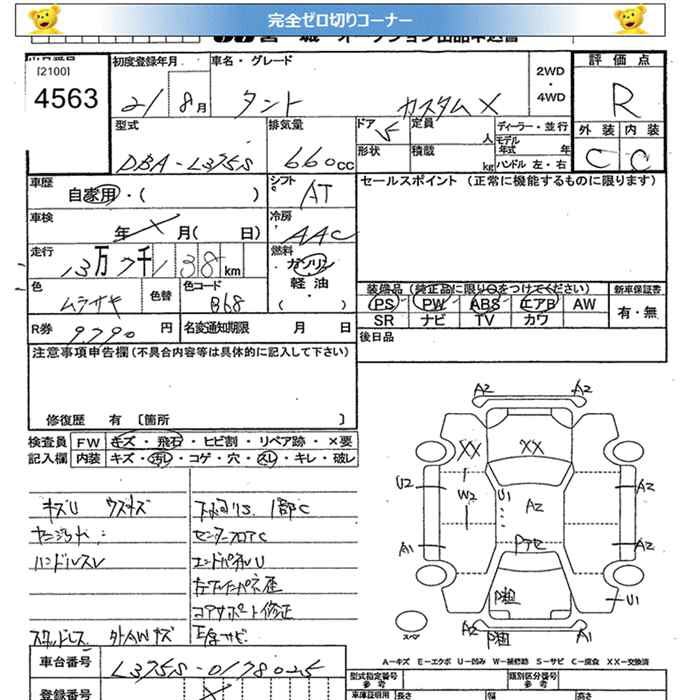 完全ゼロ切りコーナー
[2100]
4563
初度登録年月
21/8月
車名・グレード
タント カスタムX
2WD
・
4WD
評価点
R
外装 内装
C C
型式
DBA-L375S
排気量
660cc
ドア
5
定員
人
形状
積載
kg
ディーラー・並行
モデル年式 年
ハンドル 左・右
車歴
自家用・( )
シフト
AT
セールスポイント (正常に機能するものに限ります)
車検
年 X 月( 日)
冷房
AAC
走行
13万7千138km
燃料
ガソリン
軽油
・
( )
色
ムラサキ
色替
色コード
B68
装備品 (純正品に限り○をつけてください)
新車保証書
PS PW ABS エアB AW
SR ナビ TV カワ
有・無
R券
9790円
名変通知期限 月 日
後日品
注意事項申告欄(不具合内容等は具体的に記入して下さい)
修復歴 有 [箇所 ]
検査員
記入欄
FW キズ・飛石・ヒビ割・リペア跡・×要
内装 キズ・汚レ・コゲ・穴・スレ・キレ・破レ
キズU ウスキズ
ハンドルスレ
センターフロアC
エンドパネルU
コアサポート修正
スタッドレス 外AWキズ
下廻サビ
A2 A2
XX XX
U2 W2 U1 A2 A2
A1 A2
U1
スペア
A2 A1
A-キズ E-エクボ U-凹み W-補修跡 S-サビ C-腐食 XX-交換済
車台番号
L375S-0178025
登録番号
型式指定番号
参考
類別区分番号
参考
車庫証明用
長さ
幅
高さ